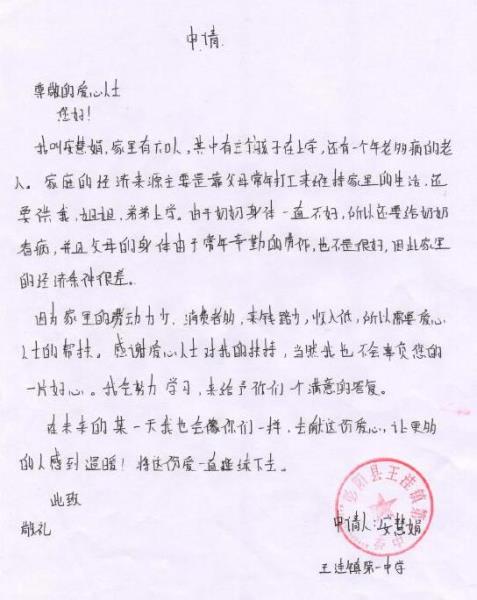 申请
尊敬的爱心人士
您好!
我叫安慧娟,家里有六口人,其中有三个孩子在上学,还有一个年老多病的老
人。家庭的经济来源主要是靠父母常年打工来维持家里的生活,还
要供我,姐姐,弟弟上学。由于奶奶身体一直不好,所以还要给奶奶
看病,并且父母的身体由于常年辛勤的劳作,也不是很好,因此家里
的经济条件很差。
因为家里的劳动力少、消费者多,来钱路少,收入低,所以需要爱心
人士的帮扶。感谢爱心人士对我的扶持,当然我也不会辜负您的
一片好心。我会努力学习,来给予你们一个满意的答复。
在未来的某一天我也会像你们一样,去献这份爱心,让更多
的人感到温暖!将这份爱一直继续下去。
此致
敬礼
申请人:安慧娟
王洼镇第一中学
彭阳县王洼镇第